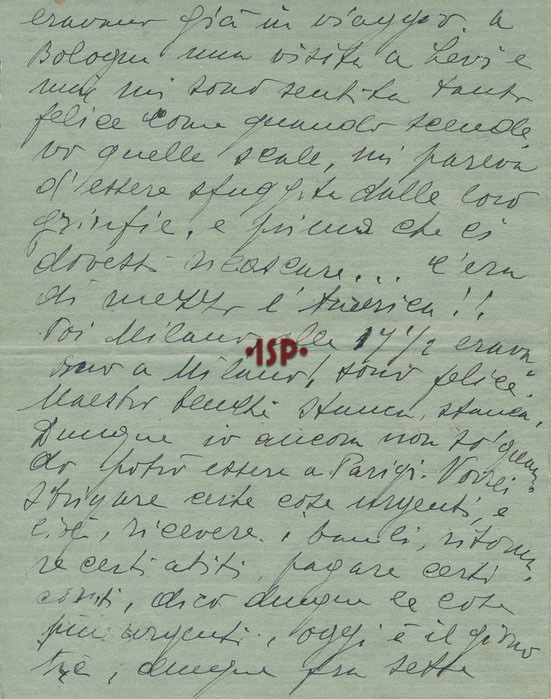 eravamo già in viaggio. a
Bologna una visita a Levi e
mai mi sono sentita tanto
felice come quando scende,
vo quelle scale, mi pareva
d'essere sfuggita dalle loro
grinfie, e prima che ci
dovessi ricascare... c'era
di mezzo l'America!!
Poi Milano alle 17 1/2 erava,
mo a Milano!, sono felice.
·ISP·
Maestro benchè stanca, stanca,
Dunque io ancora non so quan-
do potrò essere a Parigi. Vorrei
sbrigare certe cose urgenti, e
cioè, ricevere i bauli, ritorna-
re certi abiti, pagare certi
conti, dico dunque le cose
più urgenti, oggi è il giorno
tre, dunque fra sette